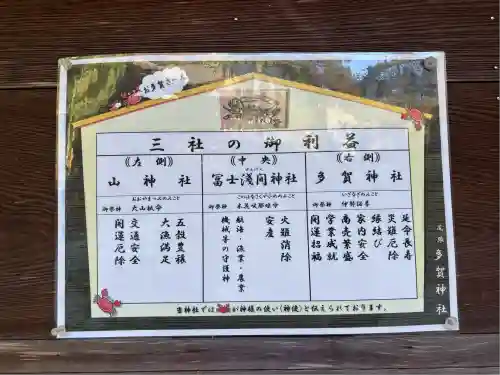 お多賀さーん
三社の御利益
《右側》
多賀神社
いざなぎのみこと
御祭神 伊弉諾尊
延命長寿
災難厄除
縁結び
家内安全
商売繁盛
学業成就
開運招福
《中央》
冨士浅間神社
せんげん
このはなさくやひめのみこと
御祭神 木花咲耶姫命
火難消除
安産
航海・漁業・農業
機械等の守護神
《左側》
山神社
おおやまつみのみこと
御祭神 大山祇命
五穀豊穣
大漁満足
交通安全
開運厄除
当神社では が神様の使い(神使)と伝えられております。
多賀神社